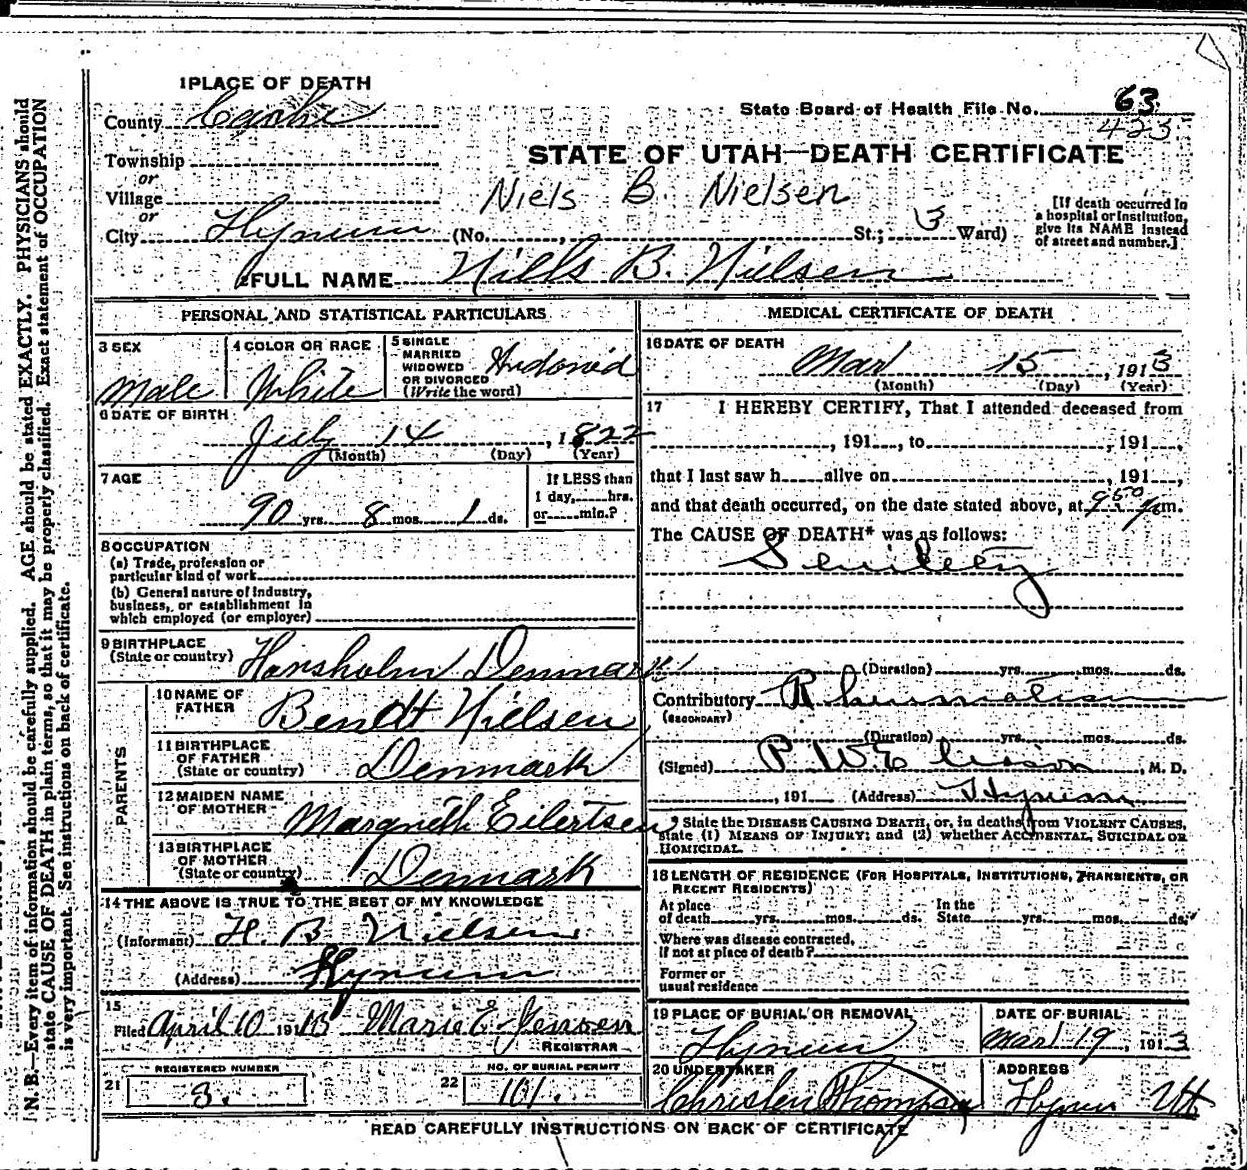 1 PLACE OF DEATH
County Cache
State Board of Health File No. 63
423
Township
or
Village
or
City Hyrum (No. , St.; 3 Ward)
STATE OF UTAH—DEATH CERTIFICATE
Niels B. Nielsen
[If death occurred in
a hospital or institution,
give its NAME instead
of street and number.]
FULL NAME Nills B. Nielsen
PERSONAL AND STATISTICAL PARTICULARS
3 SEX
Male
4 COLOR OR RACE
White
5 SINGLE
MARRIED
WIDOWED
OR DIVORCED
(Write the word)
Widowed
6 DATE OF BIRTH
July 14, 1822
(Month) (Day) (Year)
7 AGE
90 yrs. 8 mos. 1 ds.
If LESS than
1 day, hrs.
or min.?
8 OCCUPATION
(a) Trade, profession or
particular kind of work
(b) General nature of industry,
business, or establishment in
which employed (or employer)
9 BIRTHPLACE
(State or country) Horsholm Denmark
PARENTS
10 NAME OF
FATHER
Bendt Nielsen
11 BIRTHPLACE
OF FATHER
(State or country)
Denmark
12 MAIDEN NAME
OF MOTHER
Margreth Eilertsen
13 BIRTHPLACE
OF MOTHER
(State or country)
Denmark
14 THE ABOVE IS TRUE TO THE BEST OF MY KNOWLEDGE
(Informant) H. B. Nielsen
(Address) Hyrum
15
Filed April 10 1913 Marie E Jensen
REGISTRAR
REGISTERED NUMBER
21 3.
NO. OF BURIAL PERMIT
22 101.
MEDICAL CERTIFICATE OF DEATH
16 DATE OF DEATH
Mar 15, 1913
(Month) (Day) (Year)
17 I HEREBY CERTIFY, That I attended deceased from
, 191 , to , 191 ,
that I last saw h alive on , 191 ,
and that death occurred, on the date stated above, at 9 50 p m.
The CAUSE OF DEATH* was as follows:
Senility
(Duration) yrs. mos. ds.
Contributory Rhumatism
(SECONDARY)
(Duration) yrs. mos. ds.
(Signed) , M. D.
, 191 (Address) Hyrum
* State the DISEASE CAUSING DEATH, or, in deaths from VIOLENT CAUSES,
state (1) MEANS OF INJURY; and (2) whether ACCIDENTAL, SUICIDAL OR
HOMICIDAL.
18 LENGTH OF RESIDENCE (FOR HOSPITALS, INSTITUTIONS, TRANSIENTS, OR
RECENT RESIDENTS)
At place In the
of death yrs. mos. ds. State yrs. mos. ds.
Where was disease contracted,
if not at place of death?
Former or
usual residence
19 PLACE OF BURIAL OR REMOVAL
Hyrum
DATE OF BURIAL
Mar 19, 1913
20 UNDERTAKER
Christen Thompson
ADDRESS
Hyrum Ut
READ CAREFULLY INSTRUCTIONS ON BACK OF CERTIFICATE
N. B.—Every item of information should be carefully supplied. AGE should be stated EXACTLY. PHYSICIANS should
state CAUSE OF DEATH in plain terms, so that it may be properly classified. Exact statement of OCCUPATION
is very important. See instructions on back of certificate.